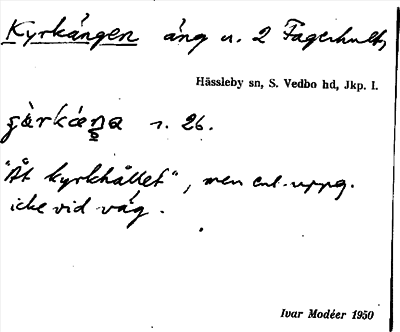 Kyrkängen äng u. 2 Fagerhult,
Hässleby sn, S. Vedbo hd, Jkp. l.
s. 26.
"Åt kyrkhållet", men enl. uppg.
icke vid väg.
Ivar Modéer 1950